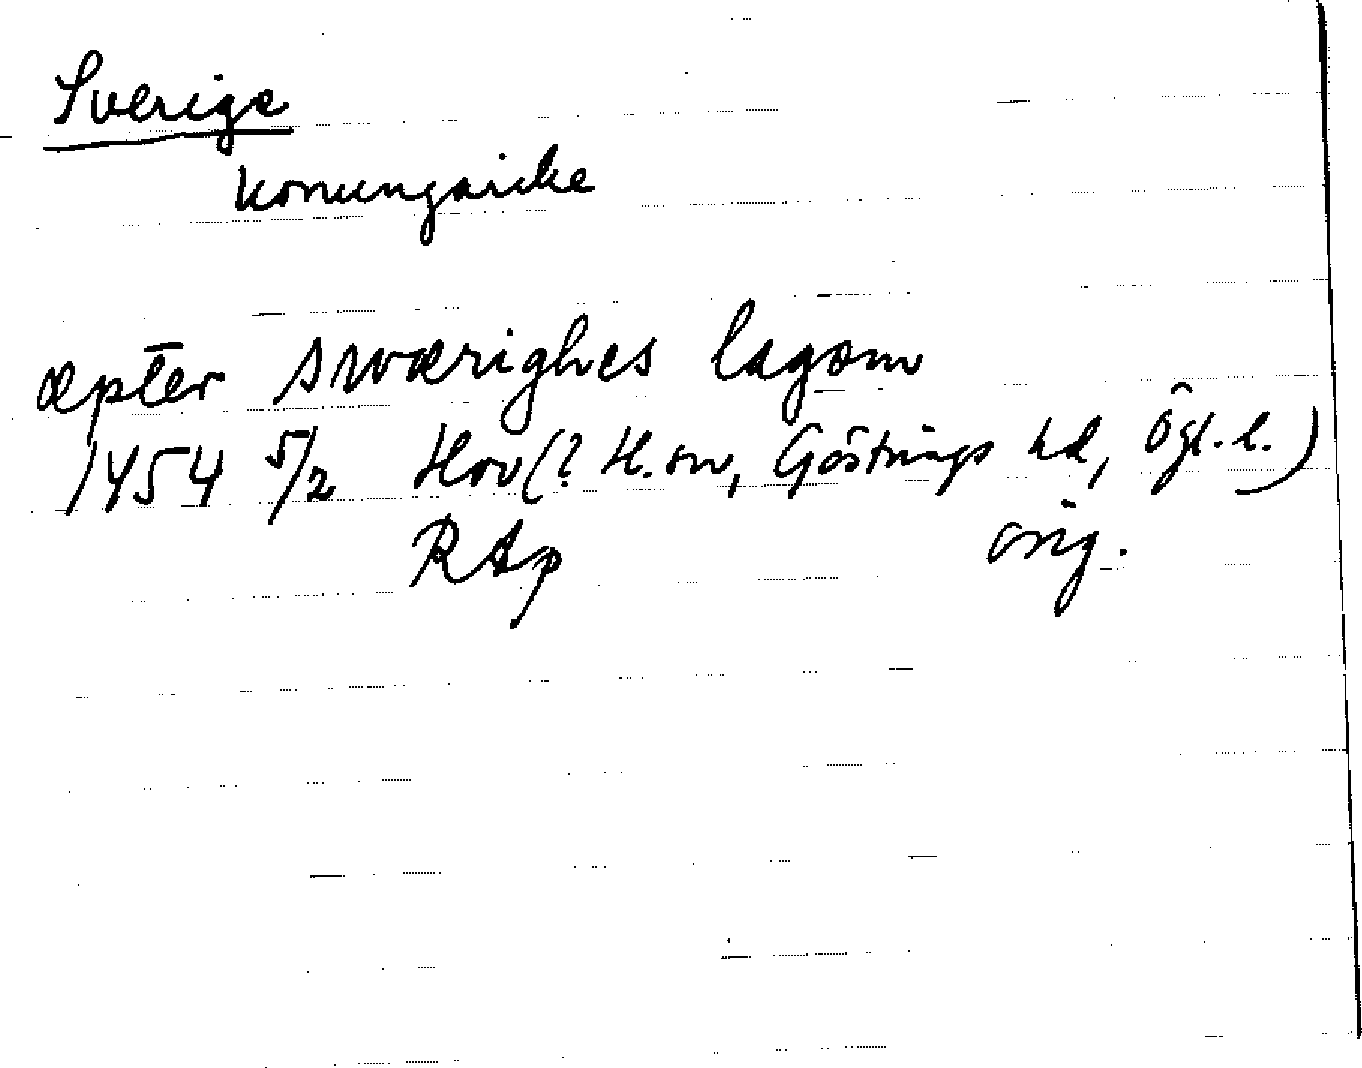 Sverige
konungarike
æpter swærighes lagom
1454 5/2 Hov (? H. sn, Göstrings hd, Ögl. l.)
RAp orig.